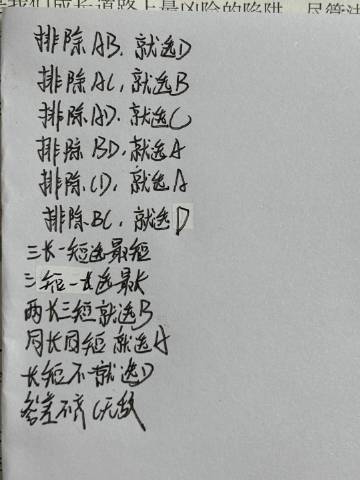 是我们成长道路上最凶险的陷阱。尽管法
排除AB.就选D
排除AC,就选B
排除AD.就选C
排除BD,就选A
排除.CD,就选A
排除BC,就选D
三长一短选最短
三短一长选最长
两长三短就选B
同长同短就选A
长短不一就选D
参差不齐C无敌